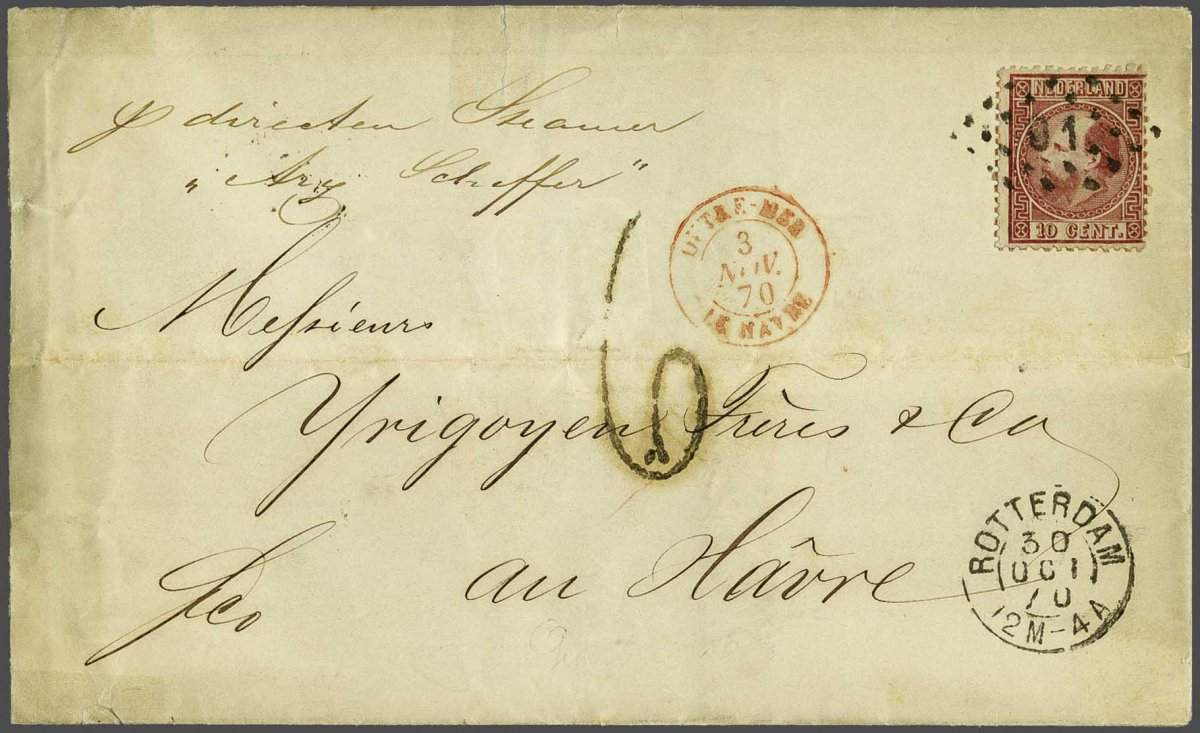 p directen Steamer
„Ary Scheffer"
NEDERLAND
91
10 CENT.
OUTRE-MER
3
NOV.
70
LE HAVRE
6
Messieurs
Yrigoyen Frères & Co
au Hâvre
fco
ROTTERDAM
30
OCT
70
12M-4A